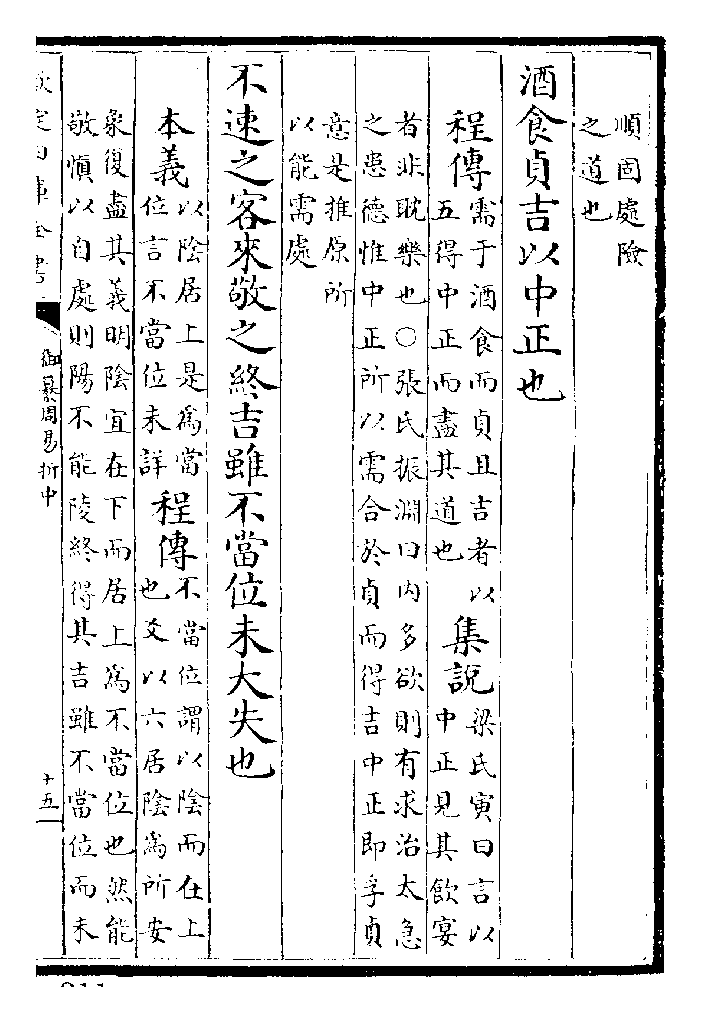 順固處險
之道也
酒食貞吉以中正也
程傳
需于酒食而貞且吉者以
五得中正而盡其道也
集說
梁氏寅曰言以
中正見其飲宴
者非耽樂也○張氏振淵曰内多欲則有求治太急
之患德惟中正所以需合於貞而得吉中正即孚貞
意是推原所
以能需處
不速之客來敬之終吉雖不當位未大失也
本義
以陰居上是為當
位言不當位未詳
程傳
不當位謂以陰而在上
也爻以六居陰為所安
象復盡其義明陰宜在下而居上為不當位也然能
敬慎以自處則陽不能陵終得其吉雖不當位而未
欽定四庫全書
御纂周易折中
十五